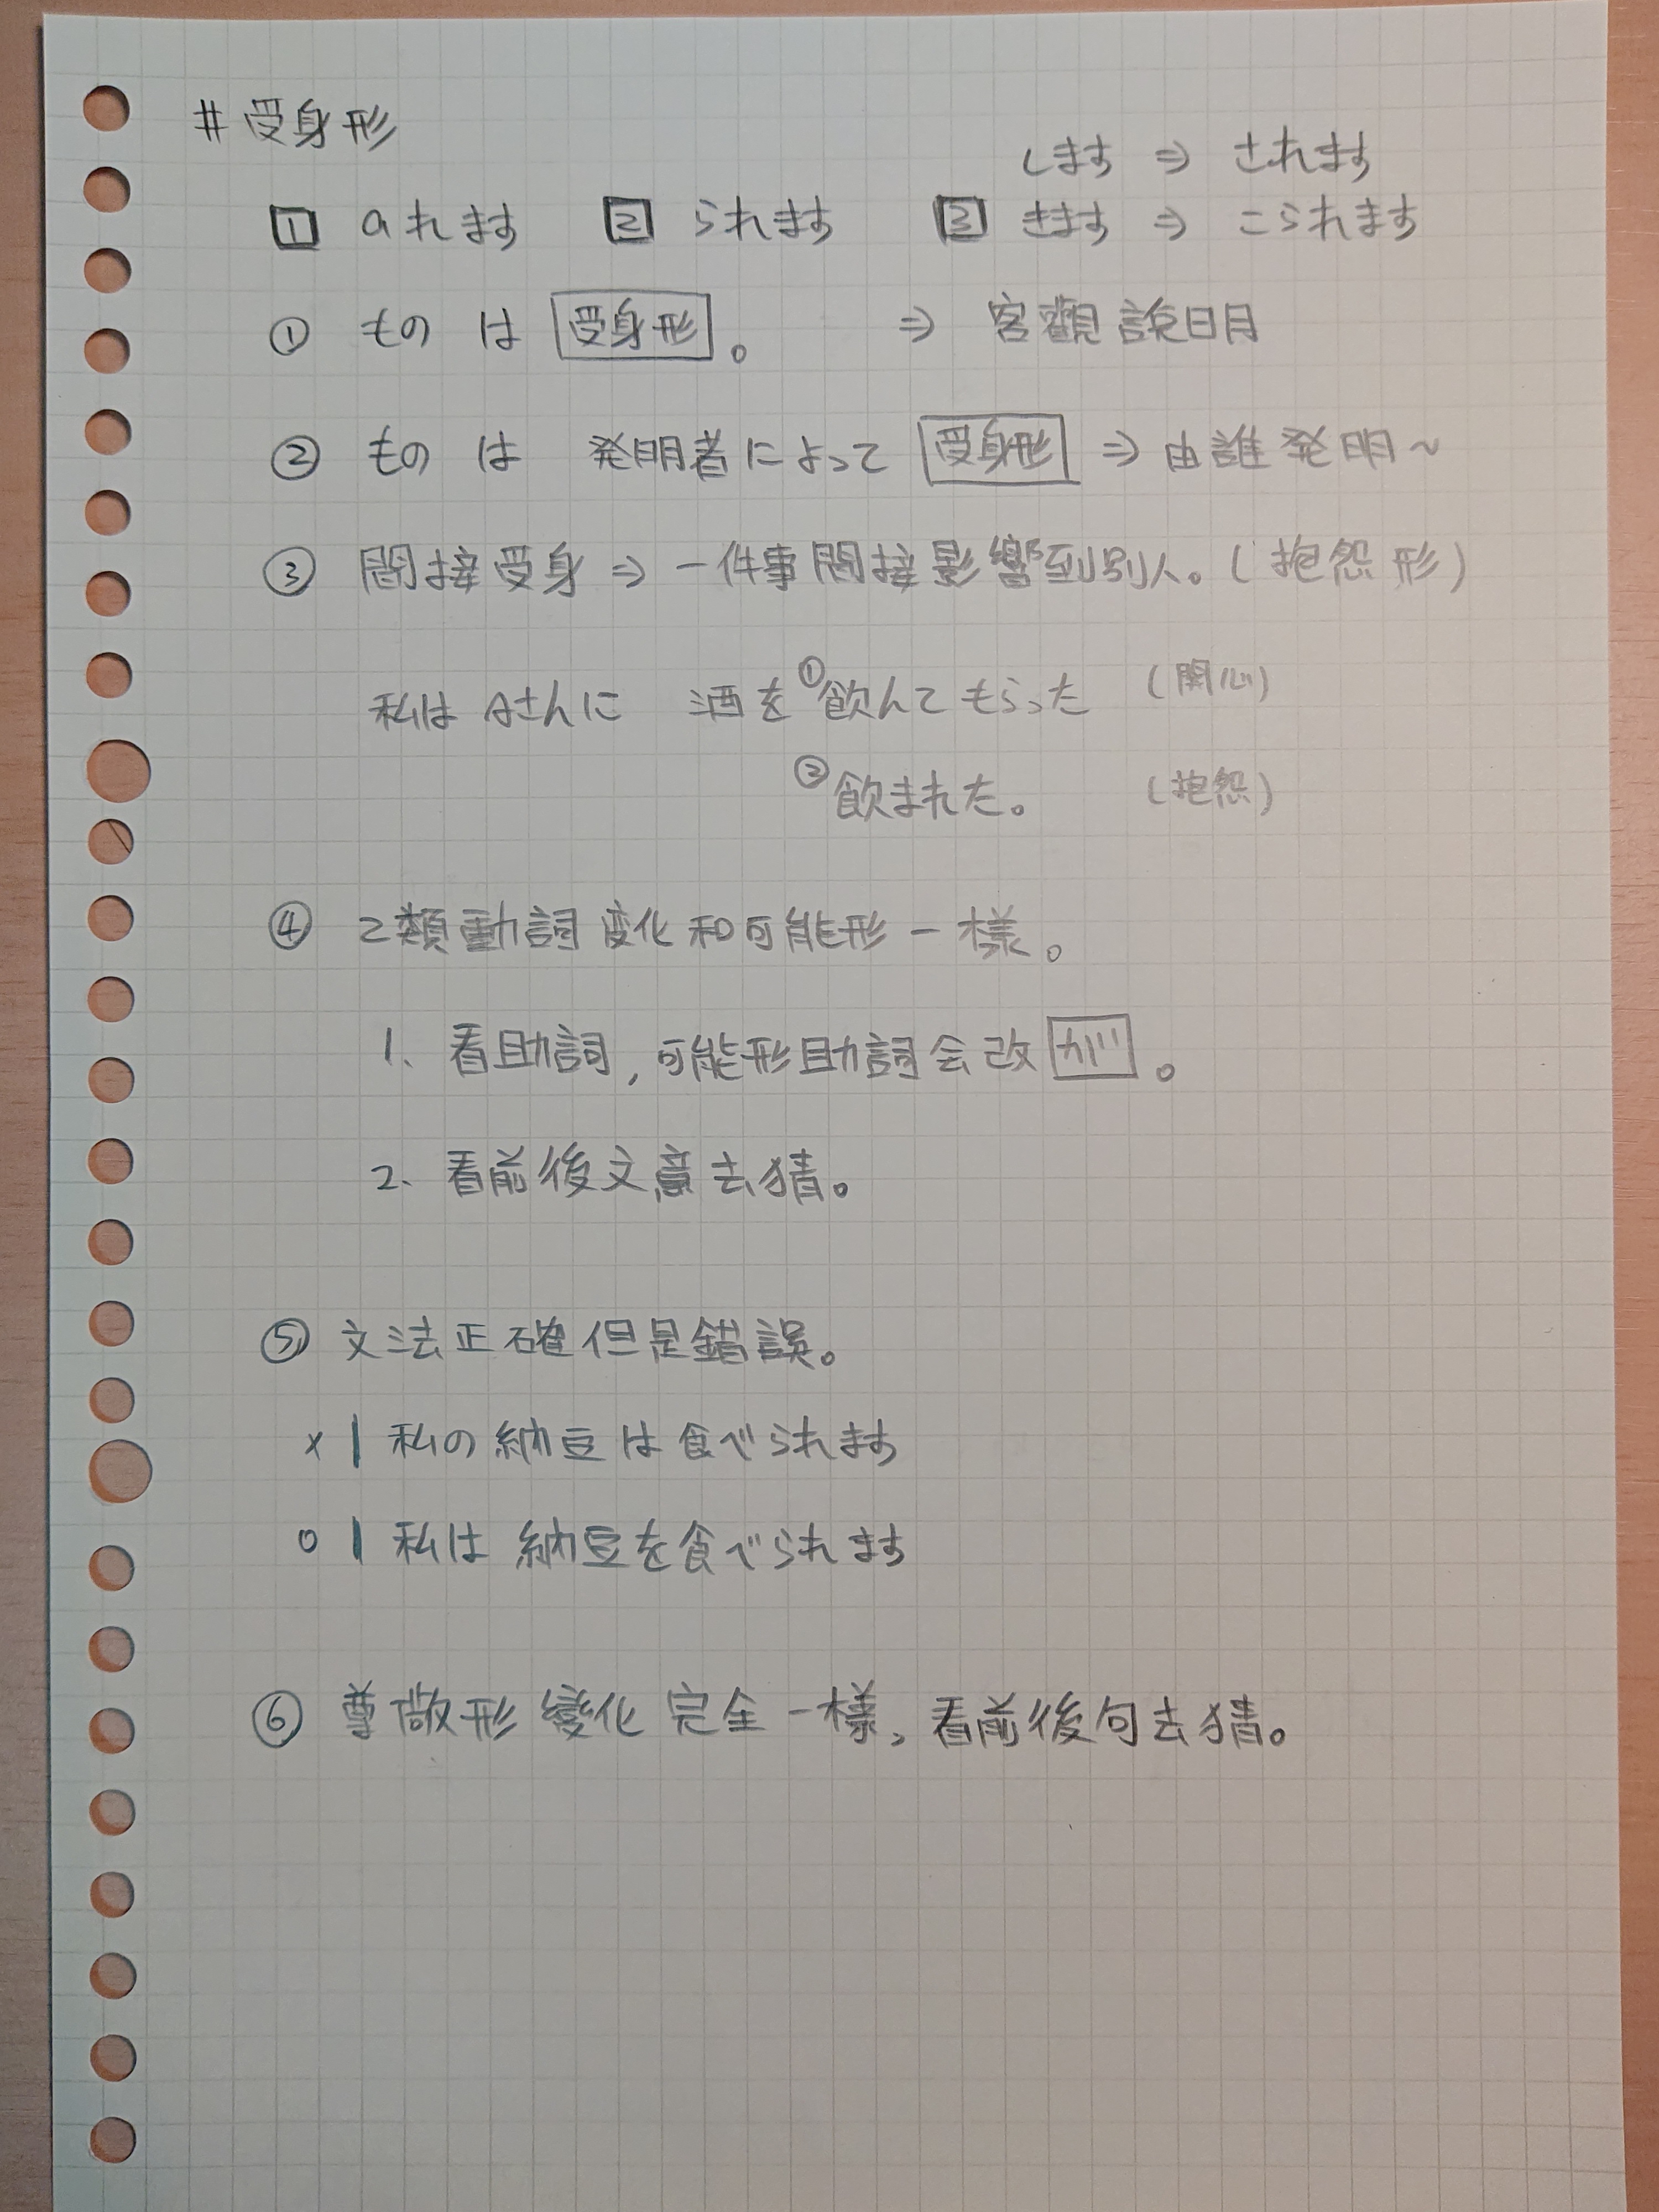 # 受身形
します ⇒ されます
1 aれます 2 られます 3 きます ⇒ こられます
① もの は 受身形。 ⇒ 客觀說明
② もの は 発明者によって 受身形 ⇒ 由誰発明~
③ 間接受身 ⇒ 一件事間接影響到別人。(抱怨形)
私は Aさんに 酒を ①飲んてもらった (開心)
②飲まれた。 (抱怨)
④ 2類動詞変化和可能形一樣。
1. 看助詞,可能形助詞会改 が。
2. 看前後文意去猜。
⑤ 文法正確但是錯誤。
x | 私の納豆は食べられます
o | 私は納豆を食べられます
⑥ 尊敬形變化完全一樣,看前後句去猜。